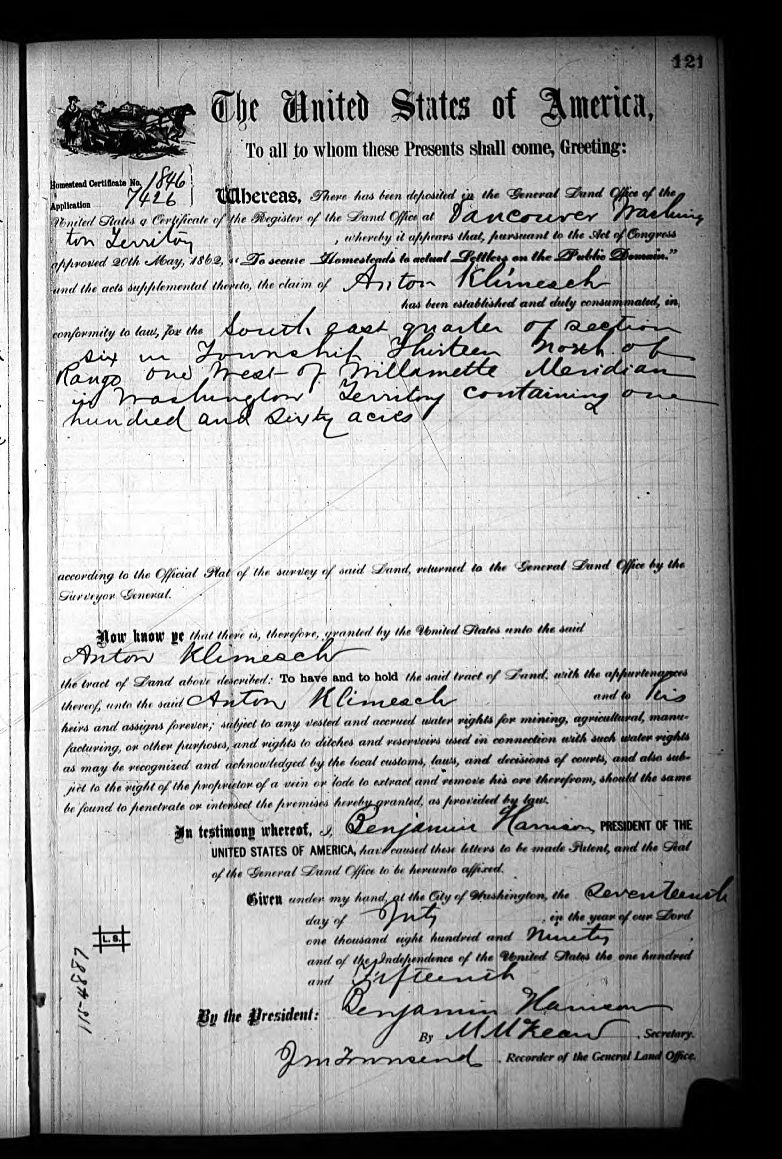 121
The United States of America,
To all to whom these Presents shall come, Greeting:
Homestead Certificate No. 1846
Application 7426
Whereas, There has been deposited in the General Land Office of the
United States a Certificate of the Register of the Land Office at Vancouver Washing
ton Territory , whereby it appears that, pursuant to the Act of Congress
approved 20th May, 1862, "To secure Homesteads to actual Settlers on the Public Domain."
and the acts supplemental thereto, the claim of Anton Klimesch
has been established and duly consummated, in
conformity to law, for the South east quarter of section
six in Township Thirteen North of
Range one West of Willamette Meridian
in Washington Territory containing one
hundred and sixty acres
according to the Official Plat of the survey of said Land, returned to the General Land Office by the
Surveyor General.
Now know ye that there is, therefore, granted by the United States unto the said
Anton Klimesch
the tract of Land above described: To have and to hold the said tract of Land, with the appurtenances
thereof, unto the said Anton Klimesch and to his
heirs and assigns forever; subject to any vested and accrued water rights for mining, agricultural, manu-
facturing, or other purposes, and rights to ditches and reservoirs used in connection with such water rights
as may be recognized and acknowledged by the local customs, laws, and decisions of courts, and also sub-
ject to the right of the proprietor of a vein or lode to extract and remove his ore therefrom, should the same
be found to penetrate or intersect the premises hereby granted, as provided by law.
In testimony whereof, I, Benjamin Harrison, PRESIDENT OF THE
UNITED STATES OF AMERICA, have caused these letters to be made Patent, and the Seal
of the General Land Office to be hereunto affixed.
Given under my hand, at the City of Washington, the Seventeenth
day of July , in the year of our Lord
one thousand eight hundred and Ninety ,
and of the Independence of the United States the one hundred
and Fifteenth
L. S.
115-4887
By the President: Benjamin Harrison
By M McKean , Secretary.
J M Townsend , Recorder of the General Land Office.